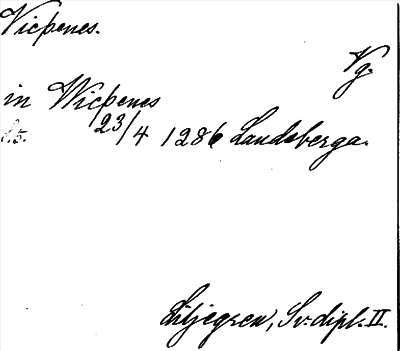 Vicþenes.
Vg.
in Wicþenes
23/4 1286 Landeberga.
Liljegren, Sv. dipl. II.